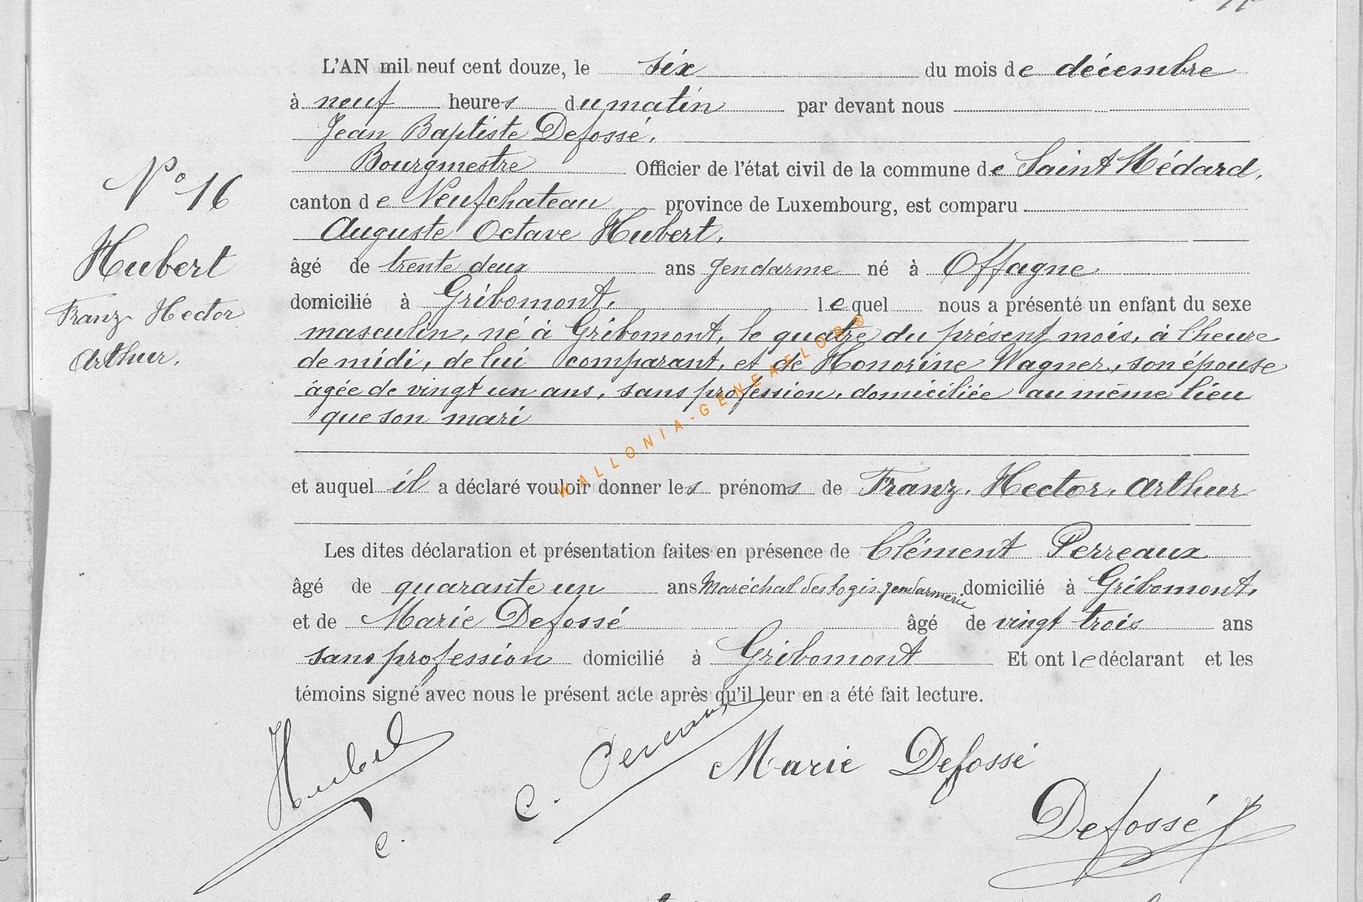 L'AN mil neuf cent douze, le six du mois de décembre
à neuf heures du matin par devant nous
Jean Baptiste Defossé,
Bourgmestre Officier de l'état civil de la commune de Saint Médard,
N° 16
canton de Neufchateau province de Luxembourg, est comparu
Auguste Octave Hubert,
Hubert
Franz Hector
Arthur.
âgé de trente deux ans gendarme né à Offagne
domicilié à Gribomont, lequel nous a présenté un enfant du sexe
masculin, né à Gribomont, le quatre du présent mois, à l'heure
de midi, de lui comparant, et de Honorine Wagner, son épouse
âgée de vingt un ans, sans profession, domiciliée au même lieu
que son mari
WALLONIA-GENEAELOGO
et auquel il a déclaré vouloir donner les prénoms de Franz, Hector, Arthur
Les dites déclaration et présentation faites en présence de Clément Perreaux
âgé de quarante un ans Maréchal des logis gendarmerie domicilié à Gribomont,
et de Marie Defossé âgé de vingt trois ans
sans profession domicilié à Gribomont Et ont le déclarant et les
témoins signé avec nous le présent acte après qu'il leur en a été fait lecture.
Hubert
C. Perreaux
Marie Defossé
Defossé